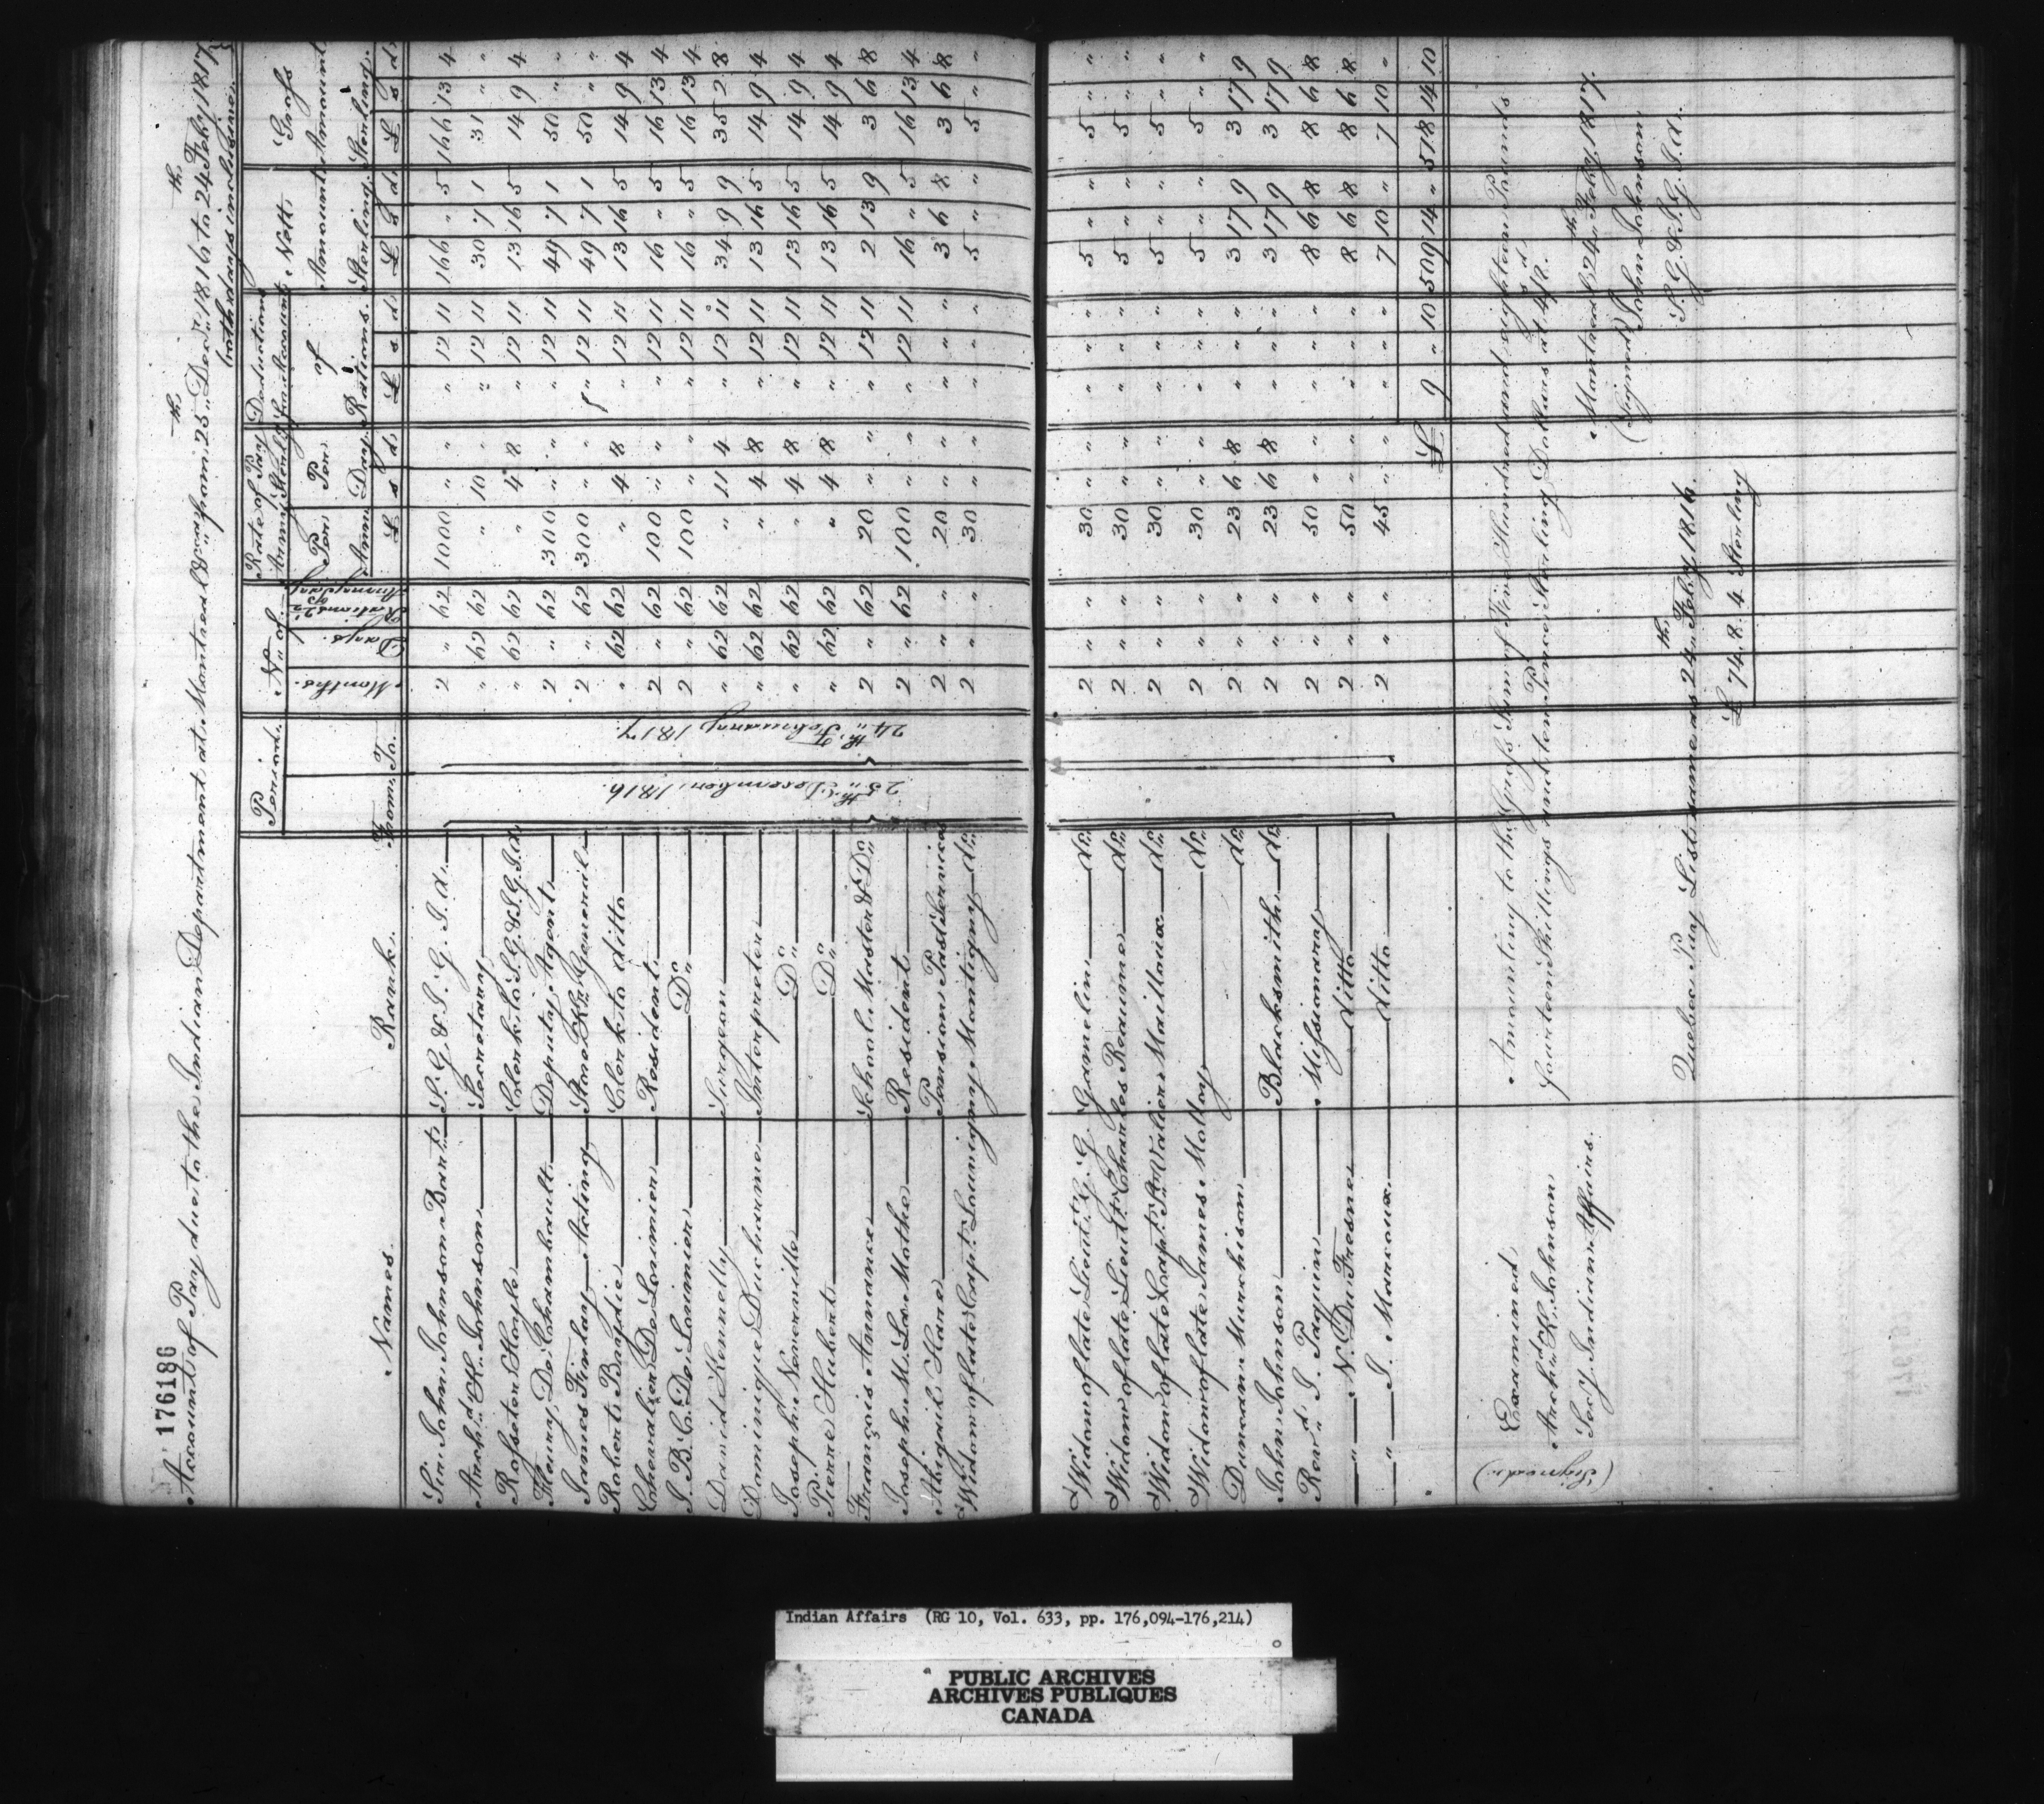 176186
Account of Pay due to the Indian Department at Montreal &ca from 25th Decr 1816 to 24th Feby 1817
both days inclusive.
Names. Rank. Period. No of. Rate of Pay Army Sterlg Deductions on Account of Rations. Nett Amount Sterling. Gross Amount Sterling.
From. To. Months. Days. Rations Per Ann: Per Day
£ s d £ s d £ s d £ s d
Sir John Johnson Bart: S. G. & I. G. I. A. 2 " 62 1000 " " " 12 11 166 " 5 166 13 4
Archd K. Johnson Secretary " 62 62 " 10 " " 12 11 30 7 1 31 " "
Rosseter Hoyle Clerk to S.G. & I.G.I.A. " 62 62 " 4 8 " 12 11 13 16 5 14 9 4
Henry De Chambault Deputy Agent 2 " 62 300 " " " 12 11 49 7 1 50 " "
James Finlay Acting Store Kr General 2 " 62 300 " " " 12 11 49 7 1 50 " "
Robert Baffie Clerk to ditto " 62 62 " 4 8 " 12 11 13 16 5 14 9 4
Chevalier De Lorimier Resident 2 " 62 100 " " " 12 11 16 " 5 16 13 4
J. B. C. De Lorimier Do 2 " 62 100 " " " 12 11 16 " 5 16 13 4
David Kennelly Surgeon " 62 62 " 11 4 " 12 11 34 9 9 35 2 8
Dominique Ducharme Interpreter " 62 62 " 4 8 " 12 11 13 16 5 14 9 4
Joseph Venerville Do " 62 62 " 4 8 " 12 11 13 16 5 14 9 4
Pierre Hubert Do " 62 62 " 4 8 " 12 11 13 16 5 14 9 4
François Annance School Master & Do 2 " 62 20 " " " 12 11 2 13 9 3 6 8
Joseph M. La Mothe Resident 2 " 62 100 " " " 12 11 16 " 5 16 13 4
Abigail Hare Pension Past Services 2 " " 20 " " " " " 3 6 8 3 6 8
Widow of late Capt. Louvigny Montigny do 2 " " 30 " " " " " 5 " " 5 " "
25th December 1816.
24th February 1817.
Widow of late Lieut. G. G. Gamelin do 2 " " 30 " " " " " 5 " " 5 " "
Widow of late Lieut. Charles Reaume do 2 " " 30 " " " " " 5 " " 5 " "
Widow of late Capt. St Valier Mailloux do 2 " " 30 " " " " " 5 " " 5 " "
Widow of late James Molloy do 2 " " 30 " " " " " 5 " " 5 " "
Duncan Murchison do 2 " " 23 6 8 " " " 3 17 9 3 17 9
John Johnson Blacksmith do 2 " " 23 6 8 " " " 3 17 9 3 17 9
Revd J. Paquin Missionary 2 " " 50 " " " " " 8 6 8 8 6 8
" N. Du Fresne ditto 2 " " 50 " " " " " 8 6 8 8 6 8
" J. Marcoux ditto 2 " " 45 " " " " " 7 10 " 7 10 "
£ 9 " 10 509 14 " 518 14 10
Amounting to the Gross Sum of Five Hundred and eighteen Pounds
fourteen Shillings and ten Pence Sterling Dollars at 4s/8d.
Montreal 24th Feby 1817.
(Signed) John Johnson
S. G. & I. G. I. A.
Examined,
(Signed) Archd K. Johnson
Secy. Indian Affairs.
Quebec Pay List same as 24th Feby 1816.
£ 74. 8. 4 Sterling
Indian Affairs (RG 10, Vol. 633, pp. 176,094-176,214)
PUBLIC ARCHIVES
ARCHIVES PUBLIQUES
CANADA